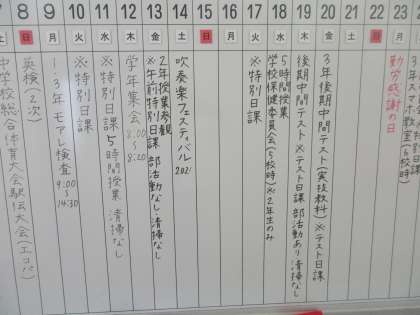 7 8 9 10 11 12 13 14 15 16 17 18 19 20 21 22 23
土 日 月 火 水 木 金 土 日 月 火 水 木 金 土 日 月
中学校総合体育大会駅伝大会(エコパ)
英検(2次)
1・3年モアレ検査 9:00〜14:30
※特別日課
※特別日課5時間授業 清掃なし
学年集会 8:05〜8:20
2年授業参観
※午前特別日課 部活動なし・清掃なし
吹奏楽フェスティバル
※特別日課
5時間授業
学校保健委員会(5校時)※2年生のみ
後期中間テスト ※テスト日課 部活動あり 清掃なし
3年後期中間テスト(実技教科)※テスト日課
勤労感謝の日
3年スマホ教室(6校時)